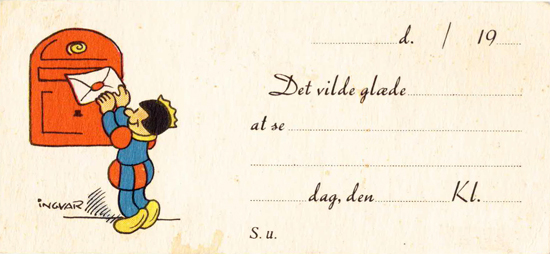 d. / 19
Det vilde glæde
at se
dag, den Kl.
S. u.
INGVAR